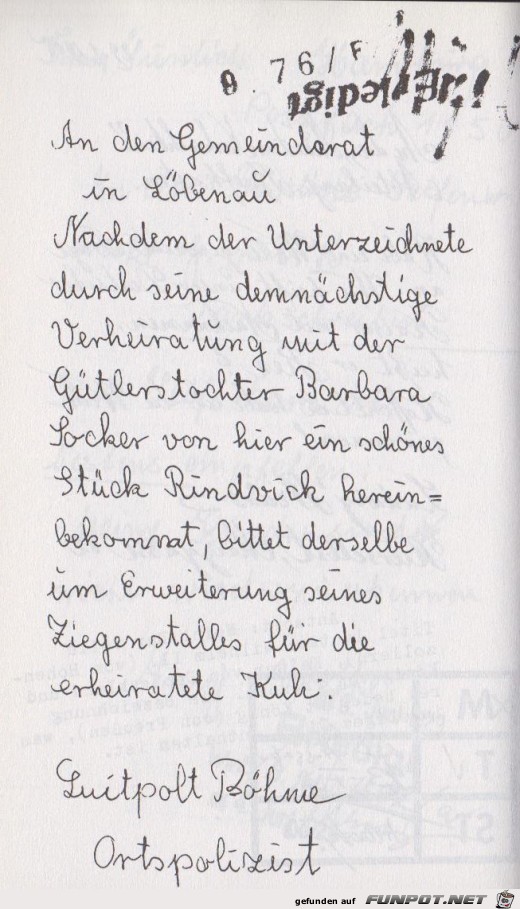 0. 76/F
Erledigt!
An den Gemeinderat
in Löbenau
Nachdem der Unterzeichnete
durch seine demnächstige
Verheiratung mit der
Gütlerstochter Barbara
Socker von hier ein schönes
Stück Rindvieh herein=
bekommt, bittet derselbe
um Erweiterung seines
Ziegenstalles für die
erheiratete Kuh.
Luitpolt Böhme
Ortspolizist
gefunden auf FUNPOT.NET